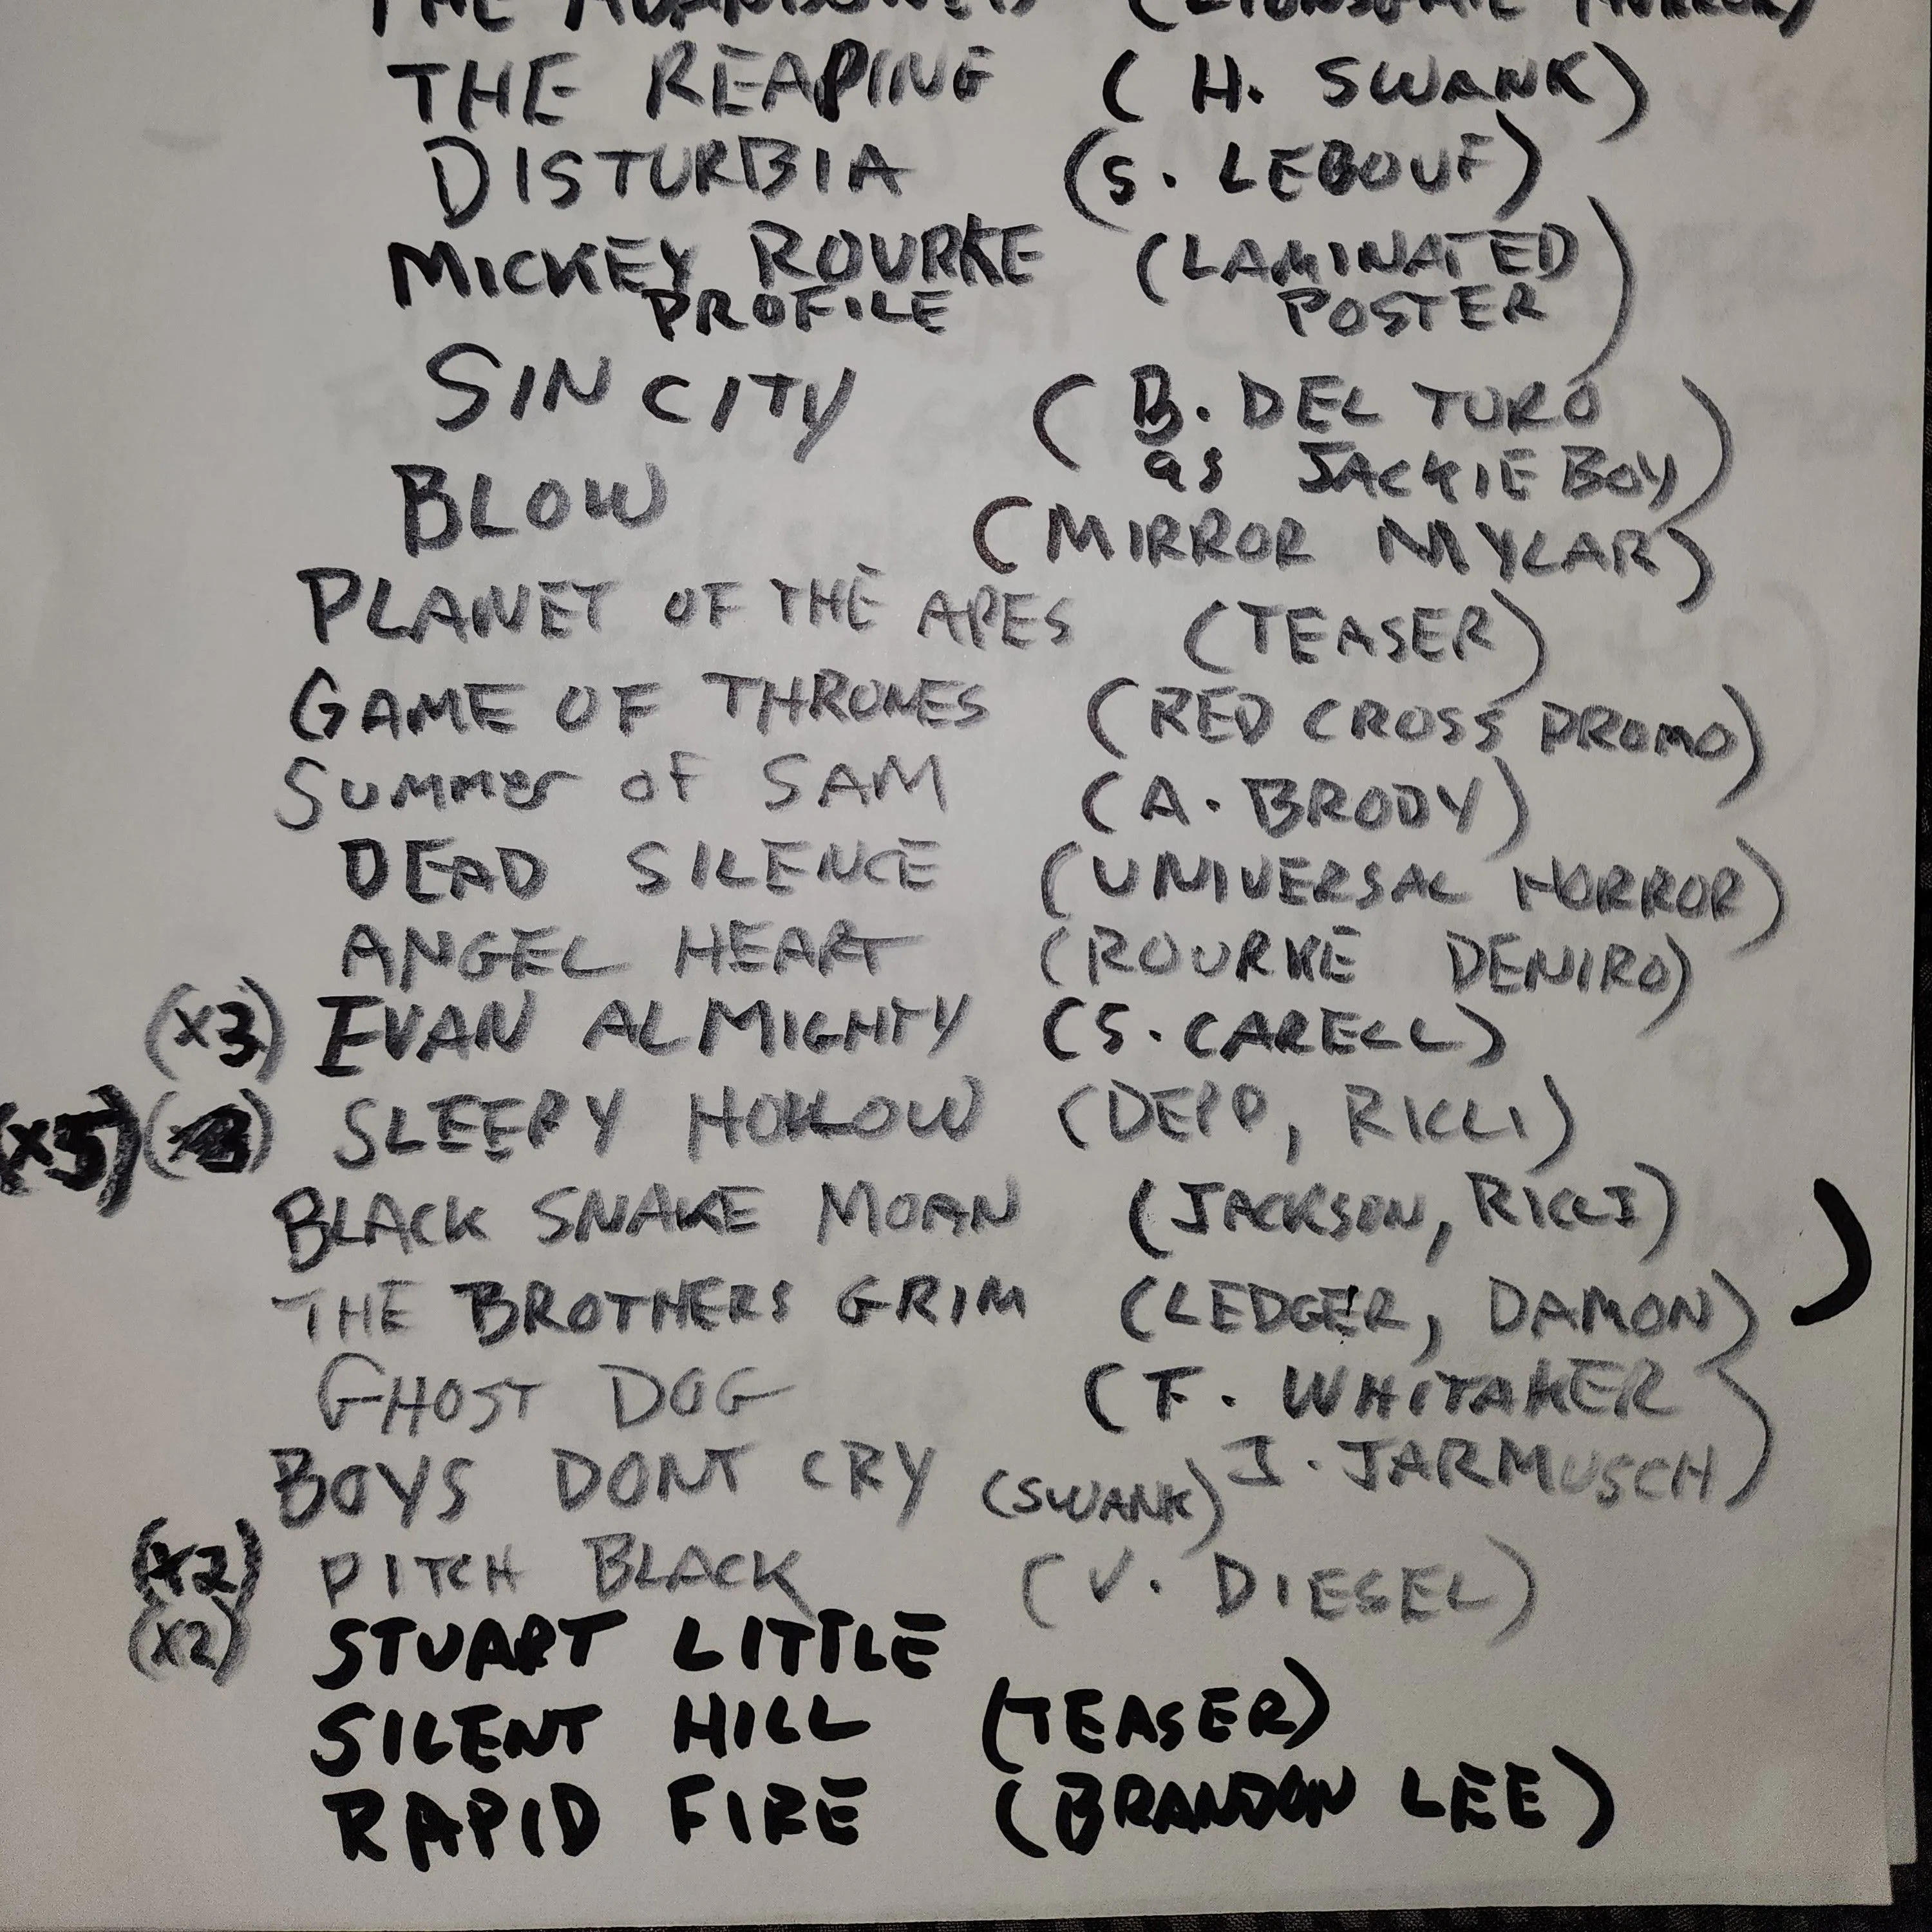 THE ABANDONED (LIONSGATE HORROR)
THE REAPING (H. SWANK)
DISTURBIA (S. LEBOUF)
MICKEY ROURKE (LAMINATED
PROFILE POSTER)
SIN CITY (B. DEL TURO
as JACKIE BOY)
BLOW (MIRROR MYLAR)
PLANET OF THE APES (TEASER)
GAME OF THRONES (RED CROSS PROMO)
SUMMER OF SAM (A. BRODY)
DEAD SILENCE (UNIVERSAL HORROR)
ANGEL HEART (ROURKE DENIRO)
(X3) EVAN ALMIGHTY (S. CARELL)
(X5) SLEEPY HOLLOW (DEPP, RICCI)
BLACK SNAKE MOAN (JACKSON, RICCI)
THE BROTHERS GRIM (LEDGER, DAMON)
GHOST DOG (F. WHITAKER
J. JARMUSCH)
BOYS DONT CRY (SWANK)
(X2) PITCH BLACK (V. DIESEL)
(X2) STUART LITTLE
SILENT HILL (TEASER)
RAPID FIRE (BRANDON LEE)